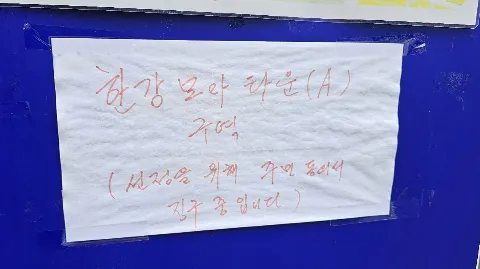 한강 모아 타운(A)
구역
(선정을 위해 주민 동의서
징구 중 입니다)